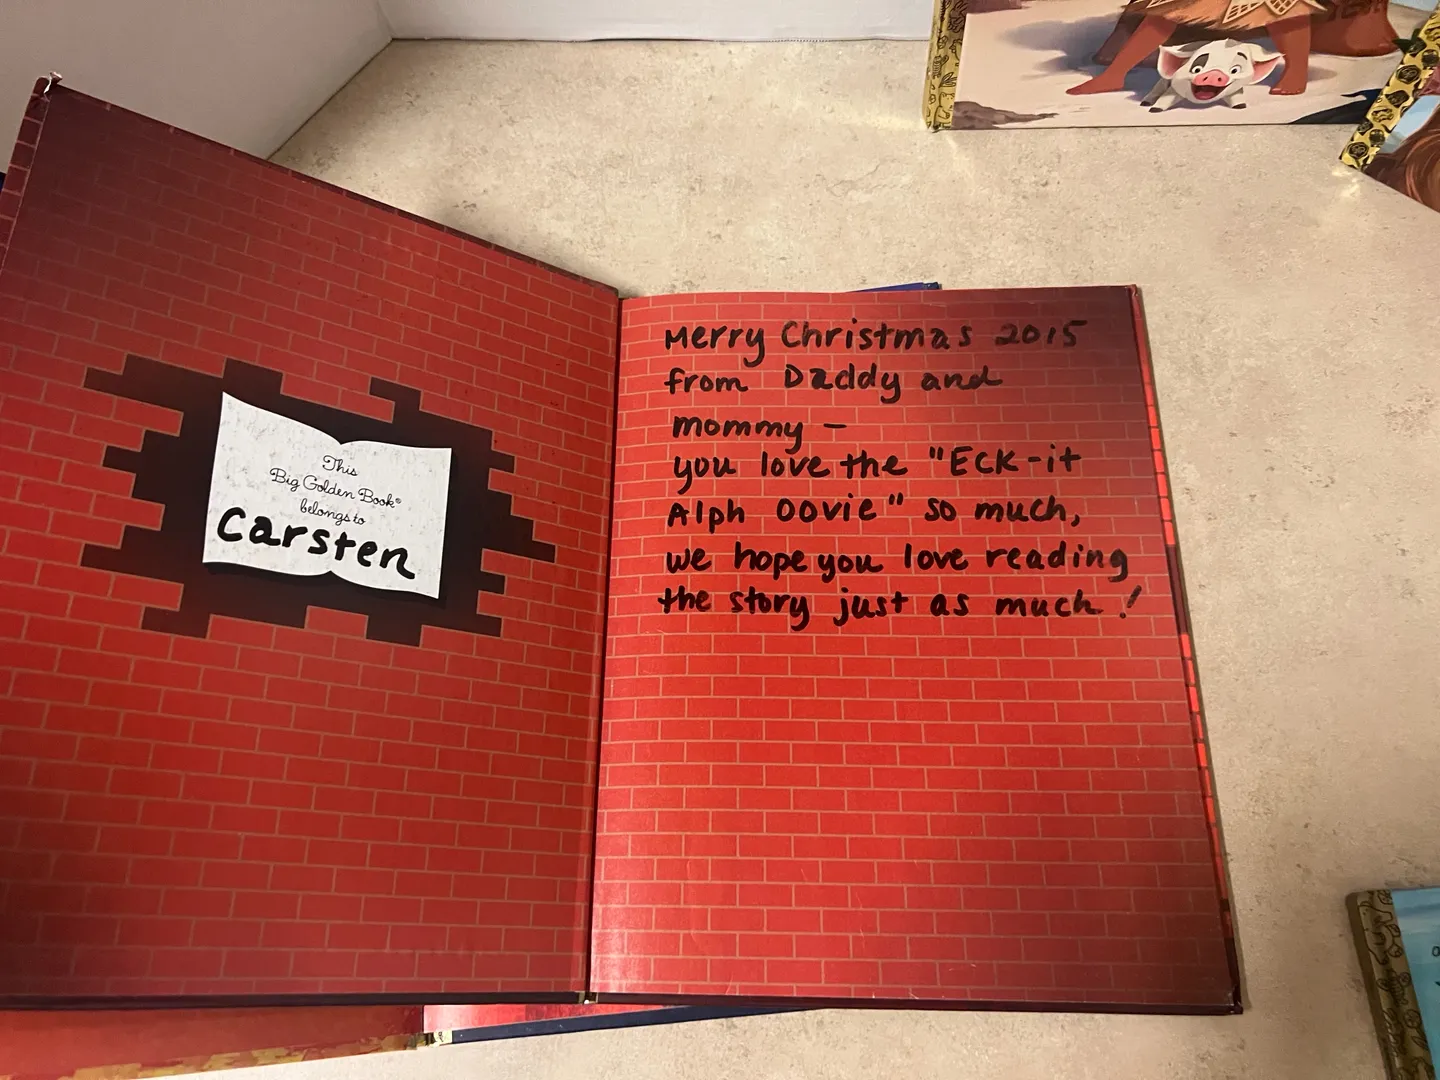 This
Big Golden Book®
belongs to
Carsten
Merry Christmas 2015
from Daddy and
mommy -
you love the "ECK-it
Alph Oovie" so much,
we hope you love reading
the story just as much!